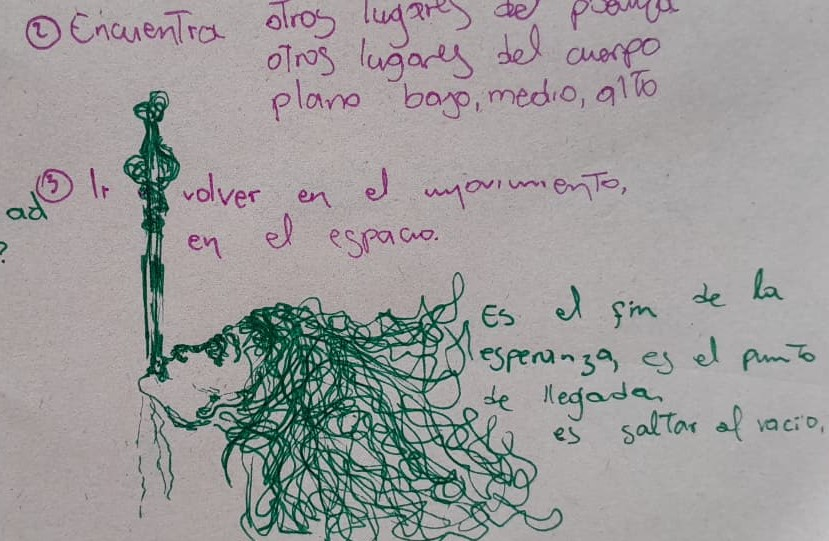 ② Encuentra otros lugares del
otros lugares del cuerpo
plano bajo, medio, alto
③ Ir volver en el movimiento,
ad
en el espacio.
?
Es el fin de la
esperanza, es el punto
de llegada,
es saltar al vacio,